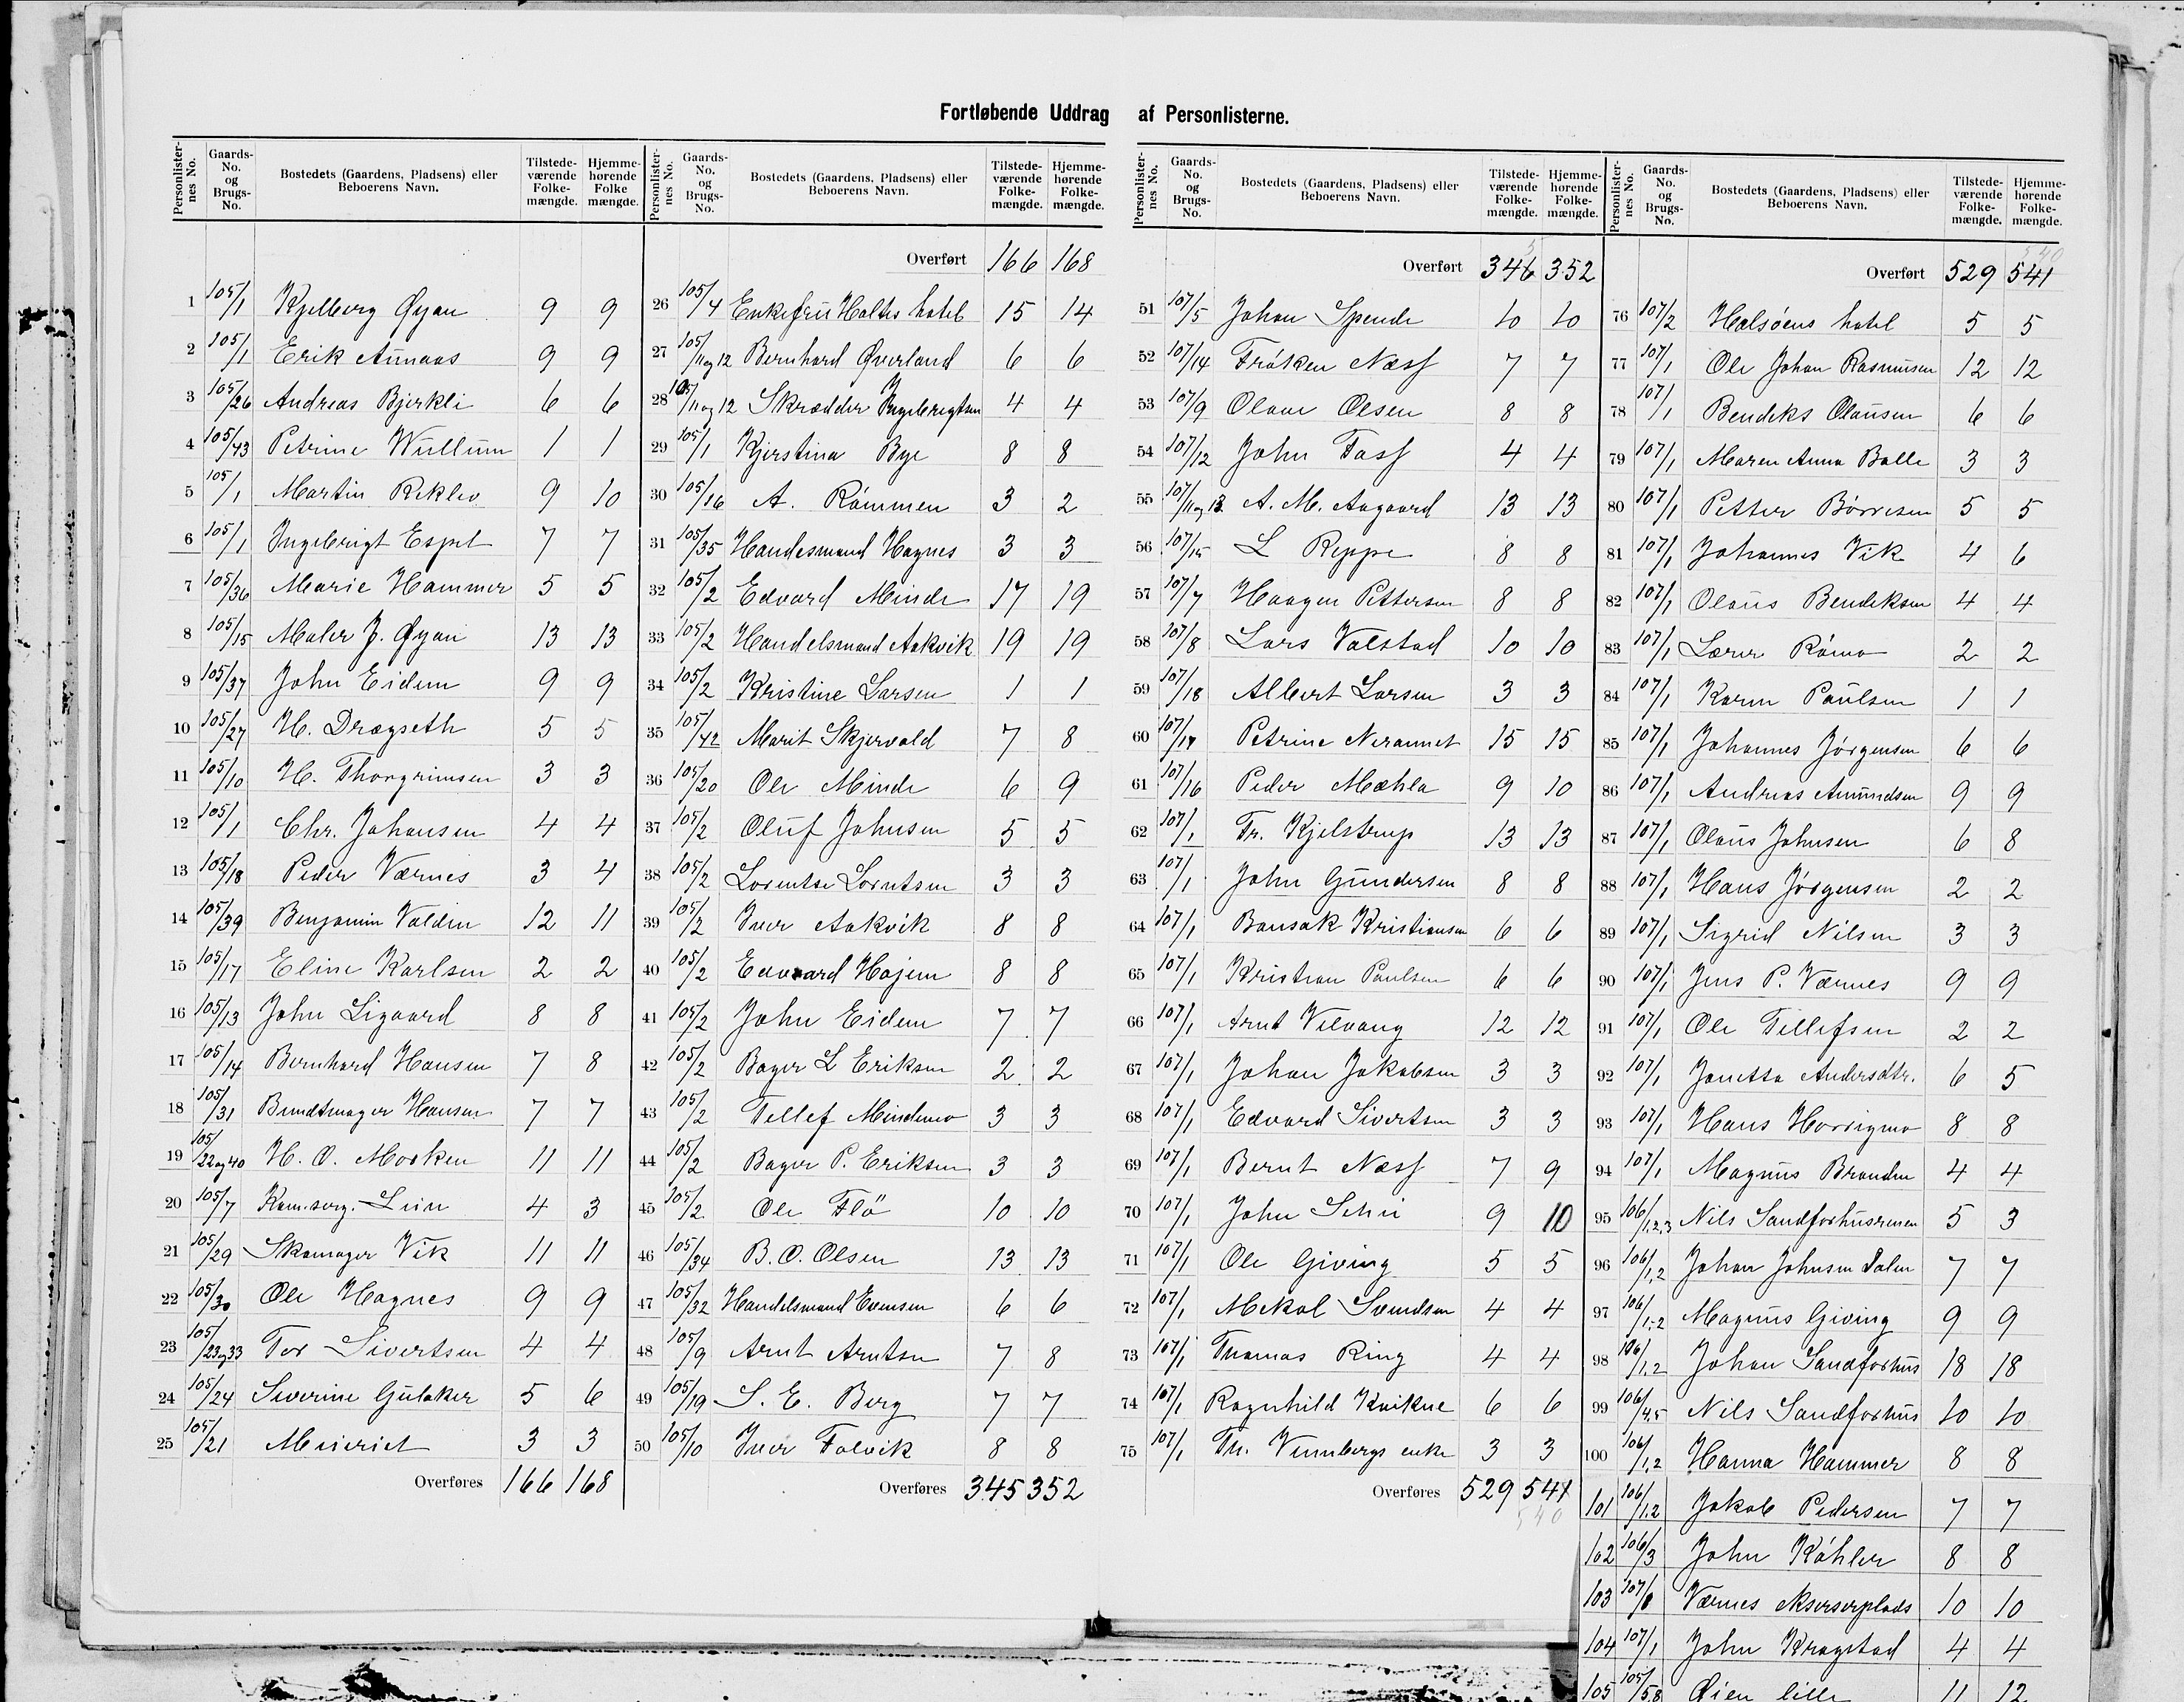 Fortløbende Uddrag af Personlisterne.
Personlister-nes No. | Gaards-No. og Brugs-No. | Bostedets (Gaardens, Pladsens) eller Beboerens Navn. | Tilstede-værende Folke-mængde. | Hjemme-hørende Folke mængde.
1 105/1 Kjelberg Øyan 9 9
2 105/1 Erik Aunaas 9 9
3 105/26 Andreas Bjerkli 6 6
4 105/43 Petrine Wullum 1 1
5 105/1 Martin Reklev 9 10
6 105/1 Ingebrigt Espet 7 7
7 105/36 Marie Hammer 5 5
8 105/15 Maler J. Øyan 13 13
9 105/37 John Eidem 9 9
10 105/27 H. Dragseth 5 5
11 105/10 H. Thorgrimsen 3 3
12 105/1 Chr. Johansen 4 4
13 105/18 Peder Værnes 3 4
14 105/39 Benjamin Valdin 12 11
15 105/17 Eline Karlsen 2 2
16 105/13 John Ligaard 8 8
17 105/14 Bernhard Hansen 7 8
18 105/31 Bundtmager Hansen 7 7
19 105/22 og 40 H. O. Morken 11 11
20 105/7 Kem.serg. Lien 4 3
21 105/29 Skomager Vik 11 11
22 105/30 Ole Hognes 9 9
23 105/23 og 33 Tor Sivertsen 4 4
24 105/24 Severine Gulaker 5 6
25 105/21 Meieriet 3 3
Overføres 166 168
Personlister-nes No. | Gaards-No. og Brugs-No. | Bostedets (Gaardens, Pladsens) eller Beboerens Navn. | Tilstede-værende Folke-mængde. | Hjemme-hørende Folke-mængde.
Overført 166 168
26 105/4 Enkefru Holtes hotel 15 14
27 105/11 og 12 Bernhard Øverland 6 6
28 105/11 og 12 Skrædder Ingebrigtsen 4 4
29 105/1 Kjerstina Bye 8 8
30 105/16 A. Rømmen 3 2
31 105/35 Handesmand Hognes 3 3
32 105/2 Edvard Minde 17 19
33 105/2 Handelsmand Aakvik 19 19
34 105/2 Kristine Larsen 1 1
35 105/42 Marit Skjervold 7 8
36 105/20 Ole Minde 6 9
37 105/2 Oluf Johnsen 5 5
38 105/2 Lorentse Lorntsen 3 3
39 105/2 Iver Aakvik 8 8
40 105/2 Edvard Hojem 8 8
41 105/2 John Eidem 7 7
42 105/2 Bager L Eriksen 2 2
43 105/2 Tellef Mindemo 3 3
44 105/2 Bager P. Eriksen 3 3
45 105/2 Ole Flö 10 10
46 105/34 B. O. Olsen 13 13
47 105/32 Handelsmand Evensen 6 6
48 105/9 Arnt Arntsen 7 8
49 105/19 S. E. Berg 7 7
50 105/10 Iver Folvik 8 8
Overføres 345 352
Personlister-nes No. | Gaards-No. og Brugs-No. | Bostedets (Gaardens, Pladsens) eller Beboerens Navn. | Tilstede-værende Folke-mængde. | Hjemme-hørende Folke-mængde.
Overført 346 352
51 107/5 Johan Spende 10 10
52 107/14 Frøken Næss 7 7
53 107/9 Olave Olsen 8 8
54 107/12 John Foss 4 4
55 107/11 og 13 A. M. Aagaard 13 13
56 107/15 L Reppe 8 8
57 107/7 Haagen Pettersen 8 8
58 107/8 Lars Valstad 10 10
59 107/18 Albert Larsen 3 3
60 107/17 Petrine Nerannet 15 15
61 107/16 Peder Mæhla 9 10
62 107/1 Fr. Kjelstrup 13 13
63 107/1 John Gundersen 8 8
64 107/1 Bansak Kristiansen 6 6
65 107/1 Kristian Paulsen 6 6
66 107/1 Arnt Vilvang 12 12
67 107/1 Johan Jakobsen 3 3
68 107/1 Edvard Sivertsen 3 3
69 107/1 Bernt Næss 7 9
70 107/1 John Schei 9 10
71 107/1 Ole Giving 5 5
72 107/1 Mekal Svendsen 4 4
73 107/1 Thomas Ring 4 4
74 107/1 Ragnhild Kvikne 6 6
75 107/1 Th. Vennbergs enke 3 3
Overføres 529 541
540
Personlister-nes No. | Gaards-No. og Brugs-No. | Bostedets (Gaardens, Pladsens) eller Beboerens Navn. | Tilstede-værende Folke-mængde. | Hjemme-hørende Folke-mængde.
540
Overført 529 541
76 107/2 Halsöens hotel 5 5
77 107/1 Ole Johan Rasmusen 12 12
78 107/1 Bendeks Olausen 6 6
79 107/1 Maren Anna Balle 3 3
80 107/1 Petter Börresen 5 5
81 107/1 Johannes Vik 4 6
82 107/1 Olaus Bendeksen 4 4
83 107/1 Lærer Römo 2 2
84 107/1 Karen Paulsen 1 1
85 107/1 Johannes Jörgensen 6 6
86 107/1 Andreas Amundsen 9 9
87 107/1 Olaus Johnsen 6 8
88 107/1 Hans Jörgensen 2 2
89 107/1 Sigrid Nilsen 3 3
90 107/1 Jens P. Værnes 9 9
91 107/1 Ole Tellefsen 2 2
92 107/1 Jonetta Andersdtr. 6 5
93 107/1 Hans Horrigmo 8 8
94 107/1 Magnus Branden 4 4
95 106/1,2,3 Nils Sandforhusenen 5 3
96 106/1,2 Johan Johnsen Dalen 7 7
97 106/1-2 Magnus Giving 9 9
98 106/1,2 Johan Sandforhus 18 18
99 106/4,5 Nils Sandforhus 10 10
100 106/1,2 Hanna Hammer 8 8
101 106/1,2 Jakob Pedersen 7 7
102 106/3 John Köhler 8 8
103 107/8 Værnes ekserserplads 10 10
104 107/1 John Kragstad 4 4
105 105/58 Öien lille 11 12